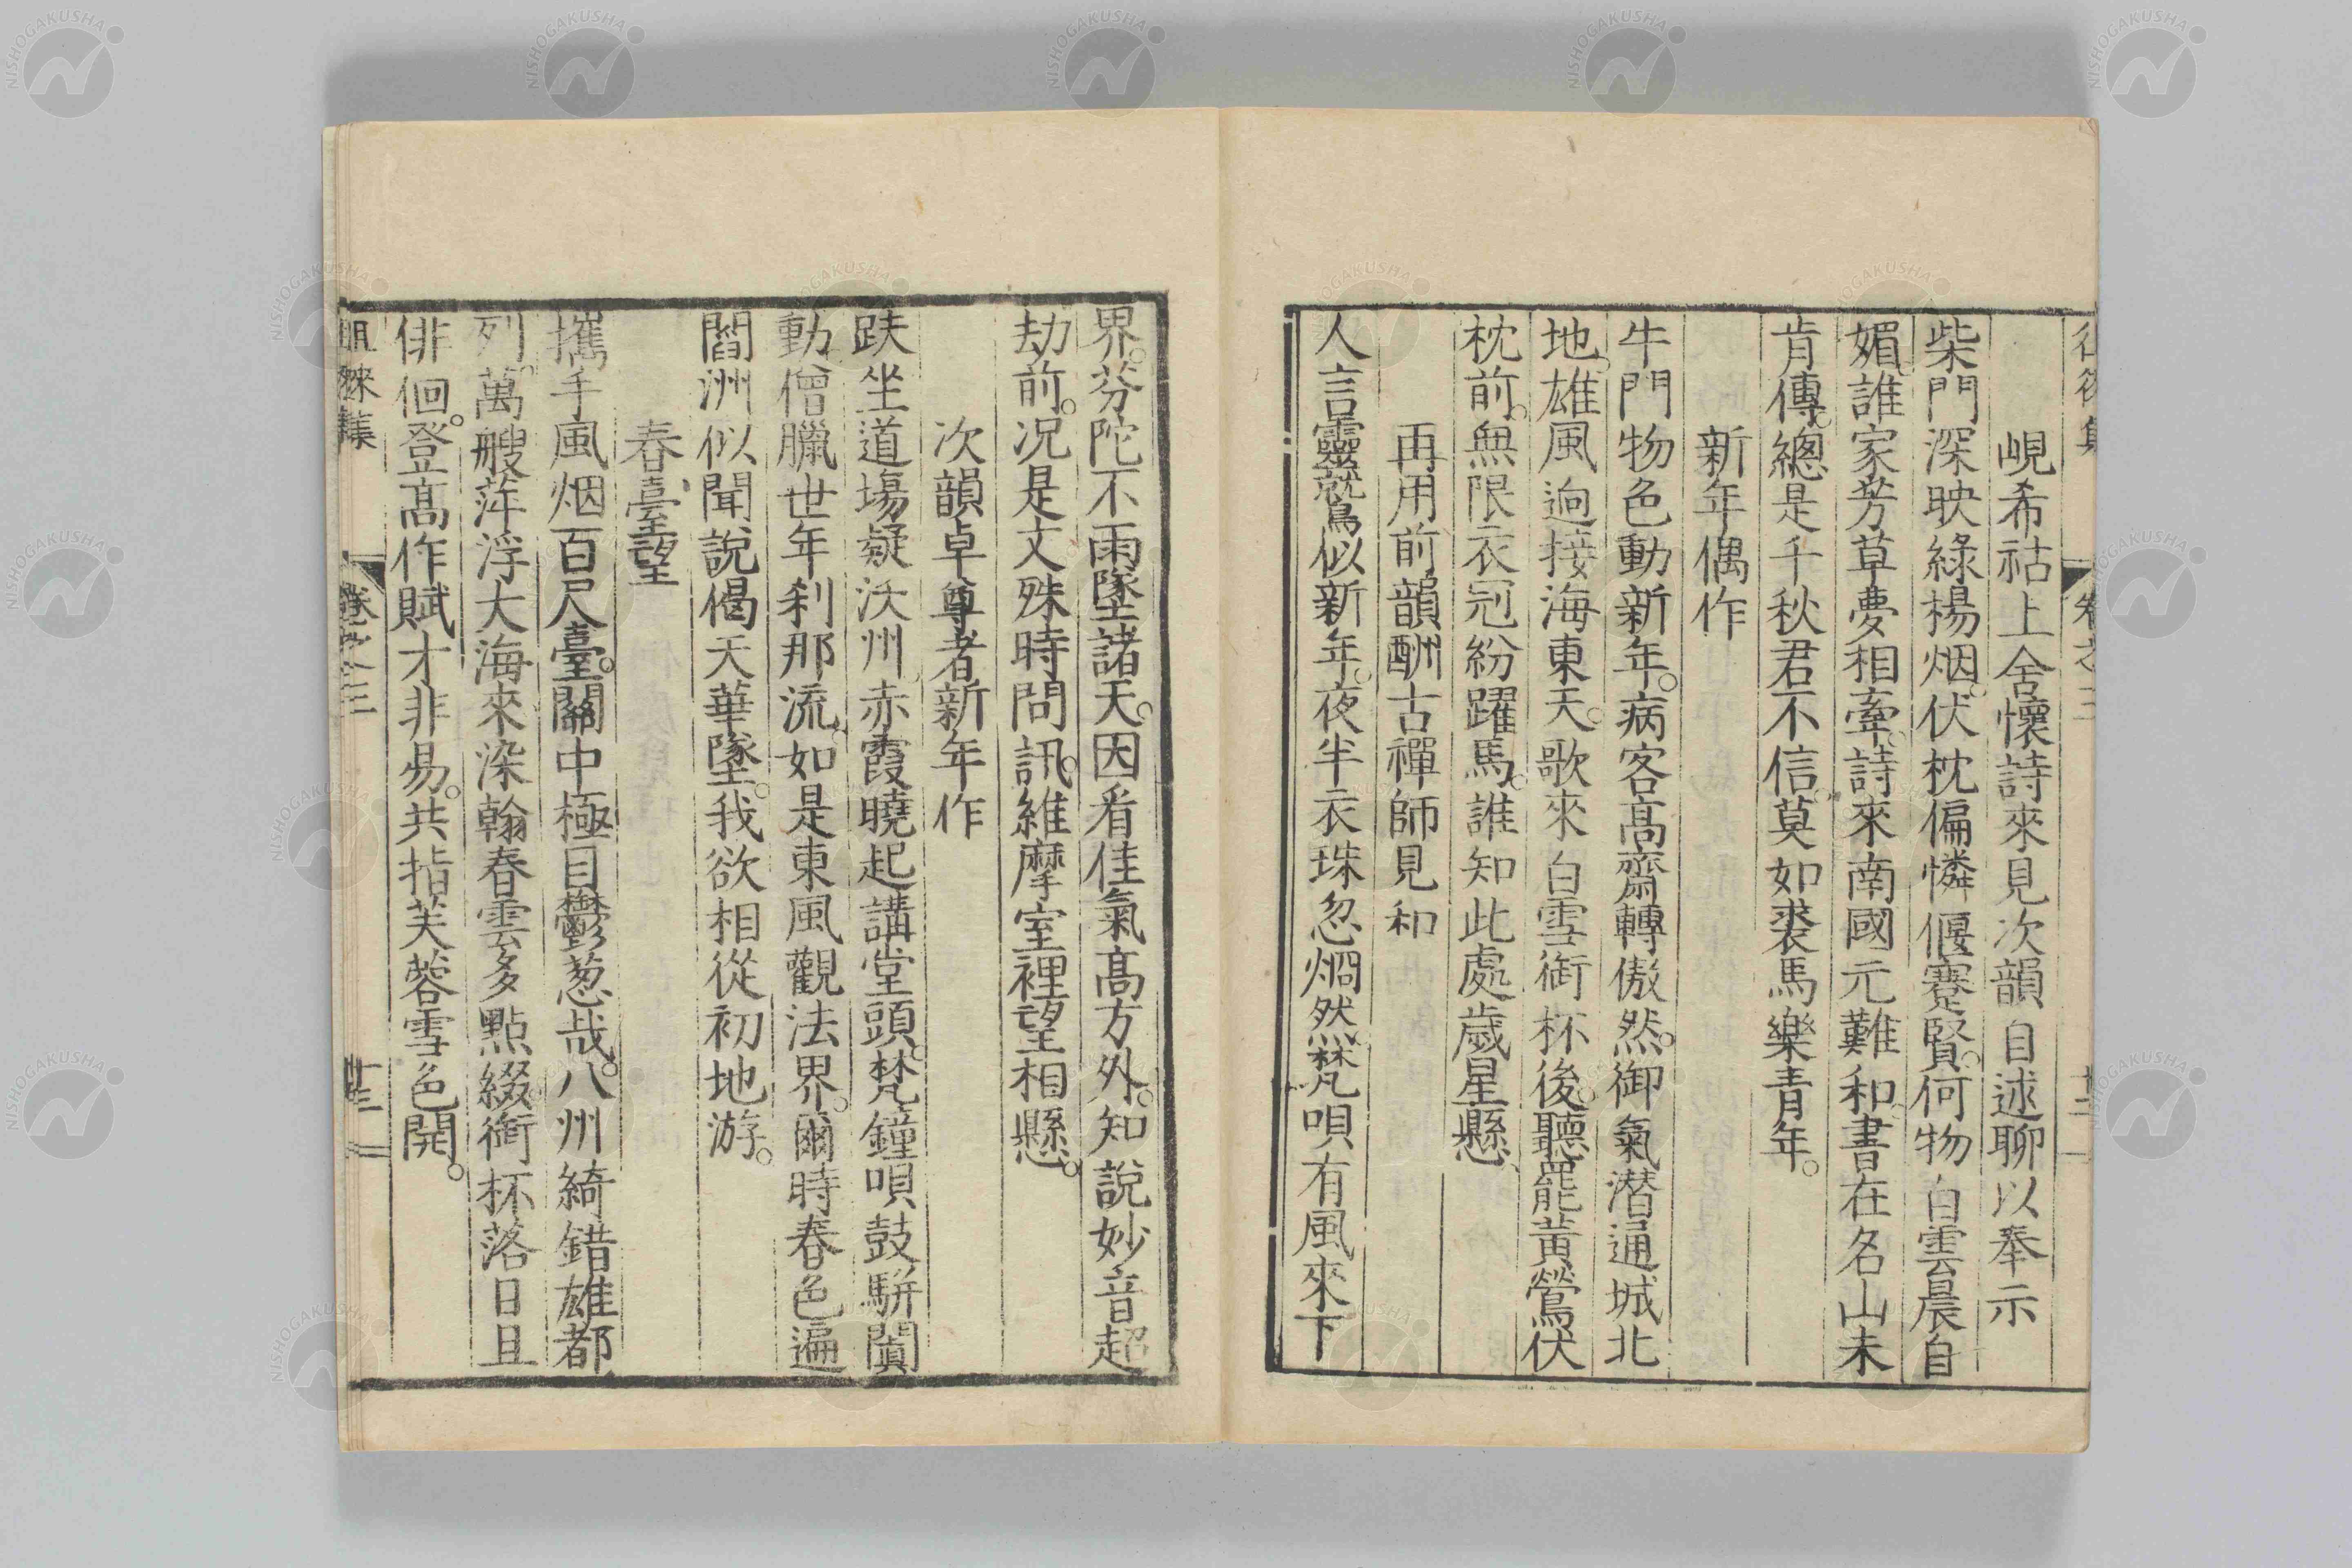 峴希祜上舍懷詩來見次韻自述聊以奉示
柴門深映綠楊烟。伏枕偏憐偃蹇賢。何物白雲晨自
媚。誰家芳草夢相牽。詩來南國元難和。書在名山未
肯傳。總是千秋君不信。莫如裘馬樂青年。
新年偶作
牛門物色動新年。病客高齋轉傲然。御氣潜通城北
地。雄風迥接海東天。歌來白雪銜杯後。聽罷黃鶯伏
枕前。無限衣冠紛躍馬。誰知此處歲星懸、
再用前韻酬古禪師見和
人言靈鷲似新年。夜半衣珠忽烱然。梵唄有風來下
界。芬陀不雨墜諸天。因看佳氣高方外。知說妙音超
劫前。况是文殊時問訊。維摩室裡望相懸。
次韻卓尊者新年作
趺坐道場疑沃州。赤霞曉起講堂頭。梵鐘唄鼓駢闐
動。僧臘世年刹那流。如是東風觀法界。爾時春色遍
閻洲。似聞說偈天華墜。我欲相從初地游。
春臺望
攜手風烟百尺臺。關中極目鬱葱哉。八州綺錯雄都
列。萬艘萍浮大海來。染翰春雲多點綴。銜杯落日且
俳徊。登高作賦才非易。共指芙蓉雪色開。
徂徠集 卷之三 廿三
NISHOGAKUSHA